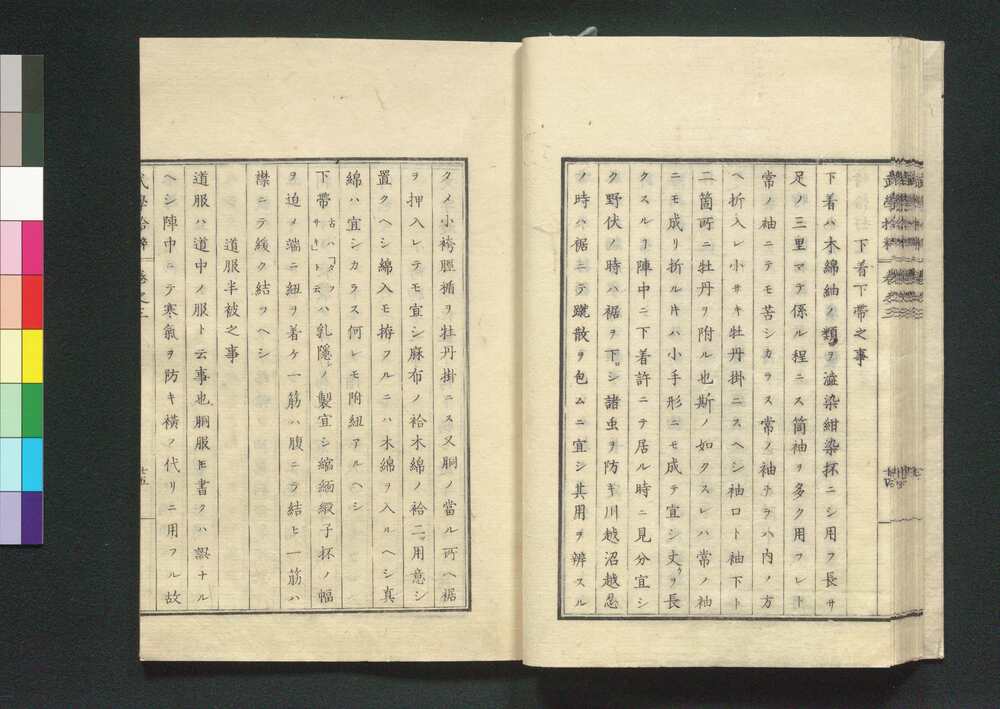 下着下帶之事
下着ハ木綿紬ノ類ヲ澁染紺染抔ニシ用フ長サ
足ノ三里マテ係ル程ニス筒袖ヲ多ク用フレト
常ノ袖ニテモ苦シカラス常ノ袖ナラハ内ノ方
ヘ折入レ小サキ牡丹掛ニスヘシ袖口ト袖下ト
二箇所ニ牡丹ヲ附ル也斯ノ如クスレハ常ノ袖
ニモ成リ折ル片ハ小手形ニモ成テ宜シ丈ヲ長
クスルヿ陣中ニ下着許ニテ居ル時ニ見分宜シ
ク野伏ノ時ハ裾ヲ下シ諸虫ヲ防キ川越沼越忍
ノ時ハ裾ニテ蹴散ヲ包ムニ宜シ其用ヲ辨スル
タメ小袴脛楯ヲ牡丹掛ニス又胴ノ當ル所ヘ裾
ヲ押入レテモ宜シ麻布ノ袷木綿ノ袷二ツ用意シ
置クヘシ綿入モ拵フルニハ木綿ヲ入ルヘシ真
綿ハ宜シカラス何レモ附紐アルヘシ
下帶古ハタフサキト云ハ乳隱ノ製宜シ縮緬緞子抔ノ幅
ヲ迫メ端ニ紐ヲ着ケ一筋ハ腹ニテ結ヒ一筋ハ
襟ニテ緩ク結フヘシ
道服半被之事
道服ハ道中ノ服ト云事也胴服ト書クハ誤ナル
ヘシ陣中ニテ寒氣ヲ防キ橫フ代リニ用フル故
武學拾粹 卷之三